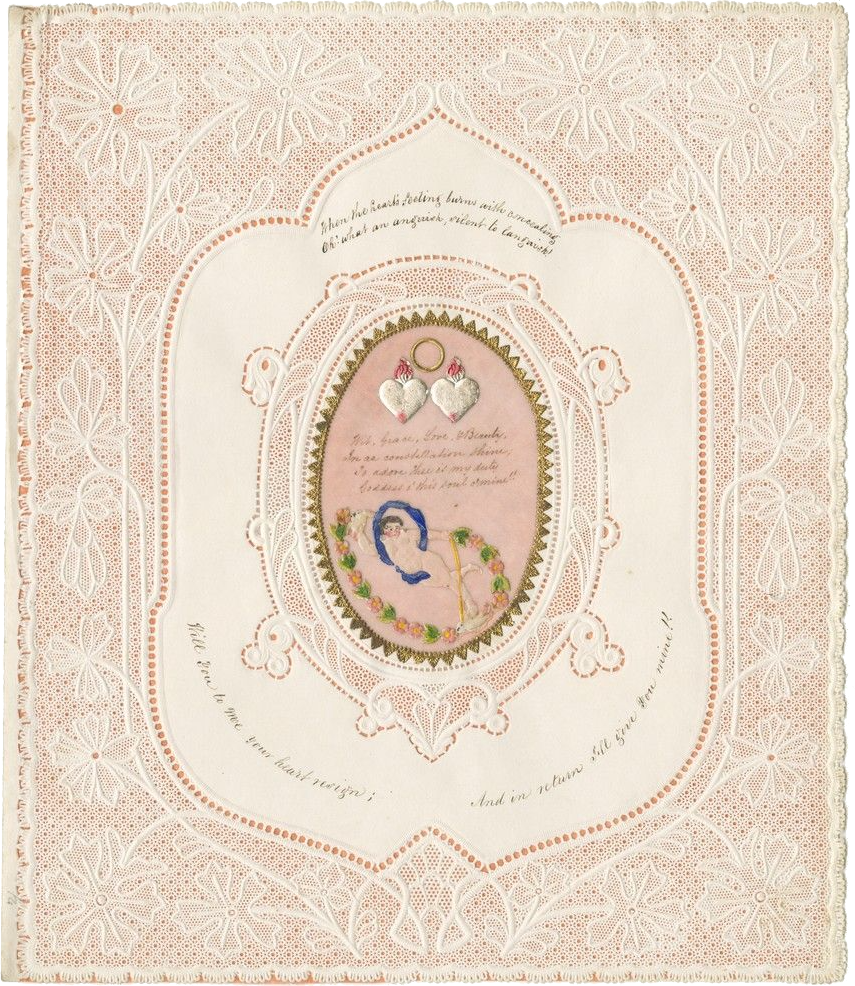 When the heart's feeling burns with concealing
Oh! what an anguish, silent to languish!
Wit, Grace, Love, & Beauty,
In ae constellation shine,
To adore thee is my duty
Goddess o' this soul o' mine!!
Will you to me your heart resign;
And in return I'll give you mine!!